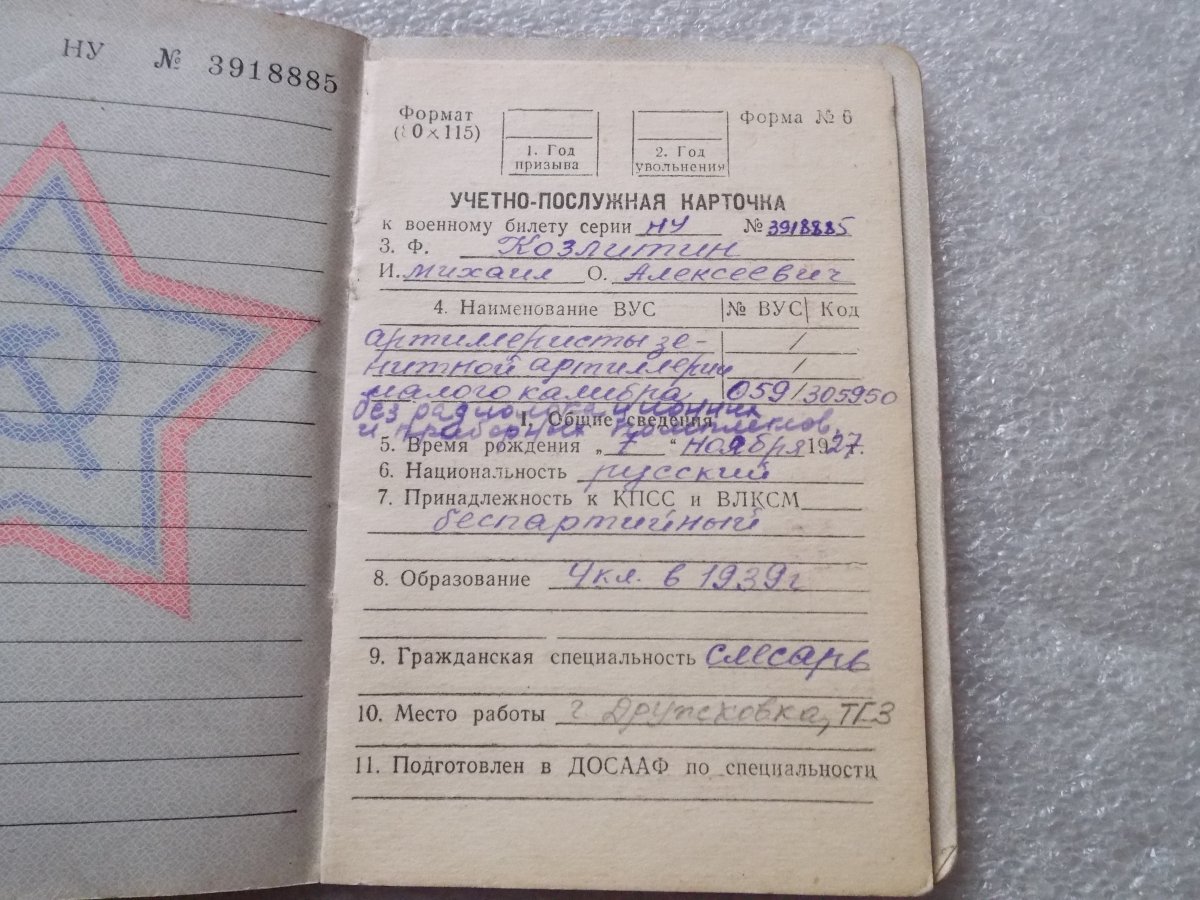 НУ № 3918885
Формат
(80×115)
1. Год
призыва
2. Год
увольнения
Форма № 6
УЧЕТНО-ПОСЛУЖНАЯ КАРТОЧКА
к военному билету серии НУ № 3918885
3. Ф. Козлитин
И. Михаил О. Алексеевич
4. Наименование ВУС № ВУС Код
артиллеристы зе- /
нитной артиллерии /
малого калибра 059/305950
без радиолокационных
I. Общие сведения
и приборных комплексов.
5. Время рождения „7“ ноября 1927г.
6. Национальность русский
7. Принадлежность к КПСС и ВЛКСМ
беспартийный
8. Образование 4кл. в 1939г
9. Гражданская специальность слесарь
10. Место работы г. Дружковка, ТГЗ
11. Подготовлен в ДОСААФ по специальности